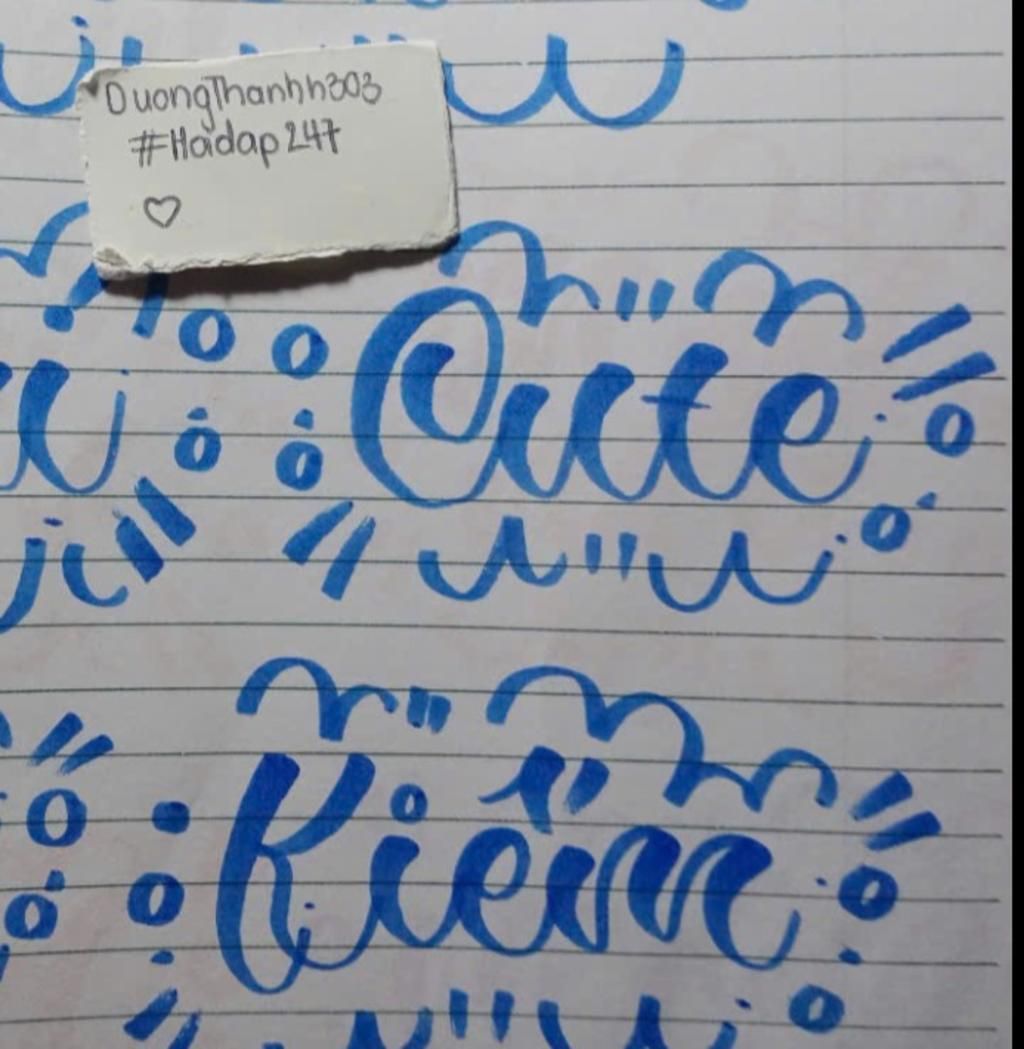 DuongThanhh303
#Hoidap247
Cute
Kiếm